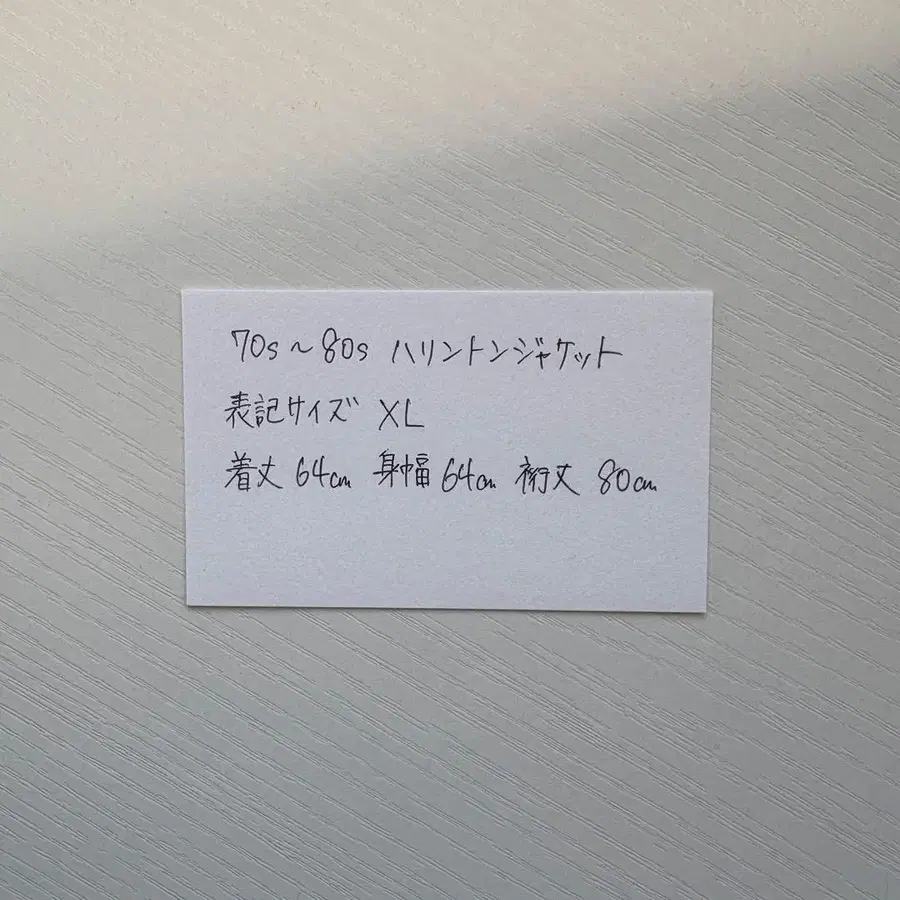 70s～80s ハリントンジャケット
表記サイズ XL
着丈 64cm 身幅 64cm 裄丈 80cm